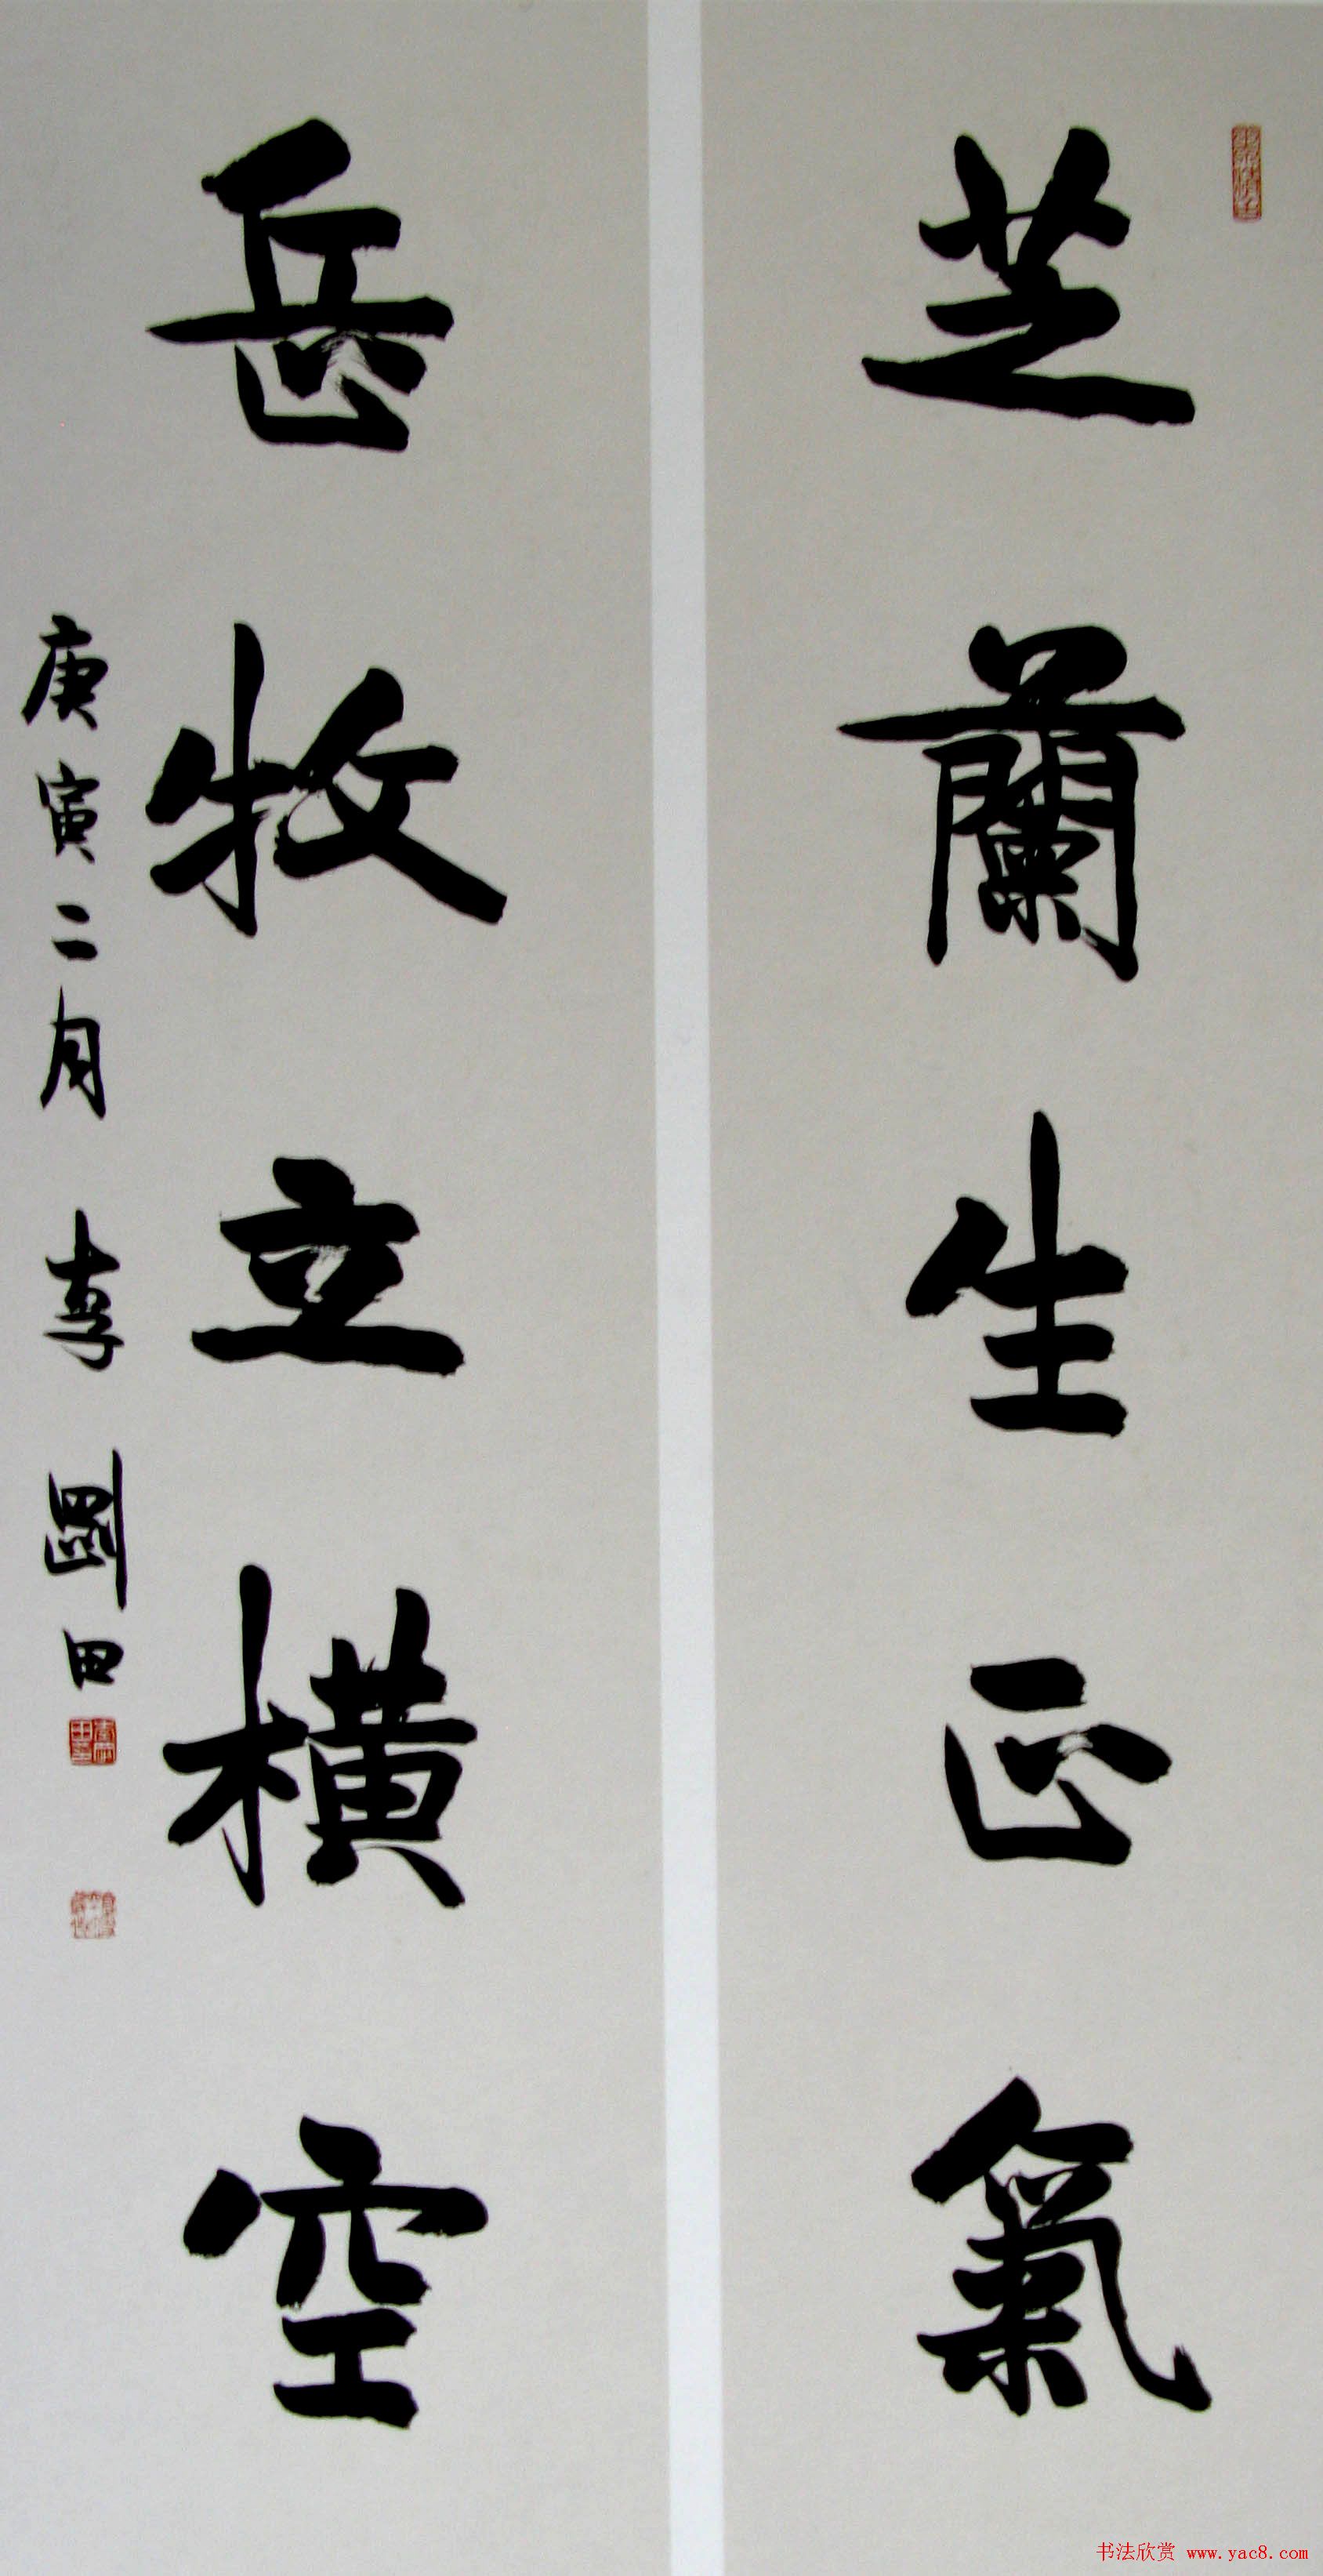 芝蘭生正氣
岳牧立橫空
庚寅二月 李剛田
书法欣赏 www.yac8.com